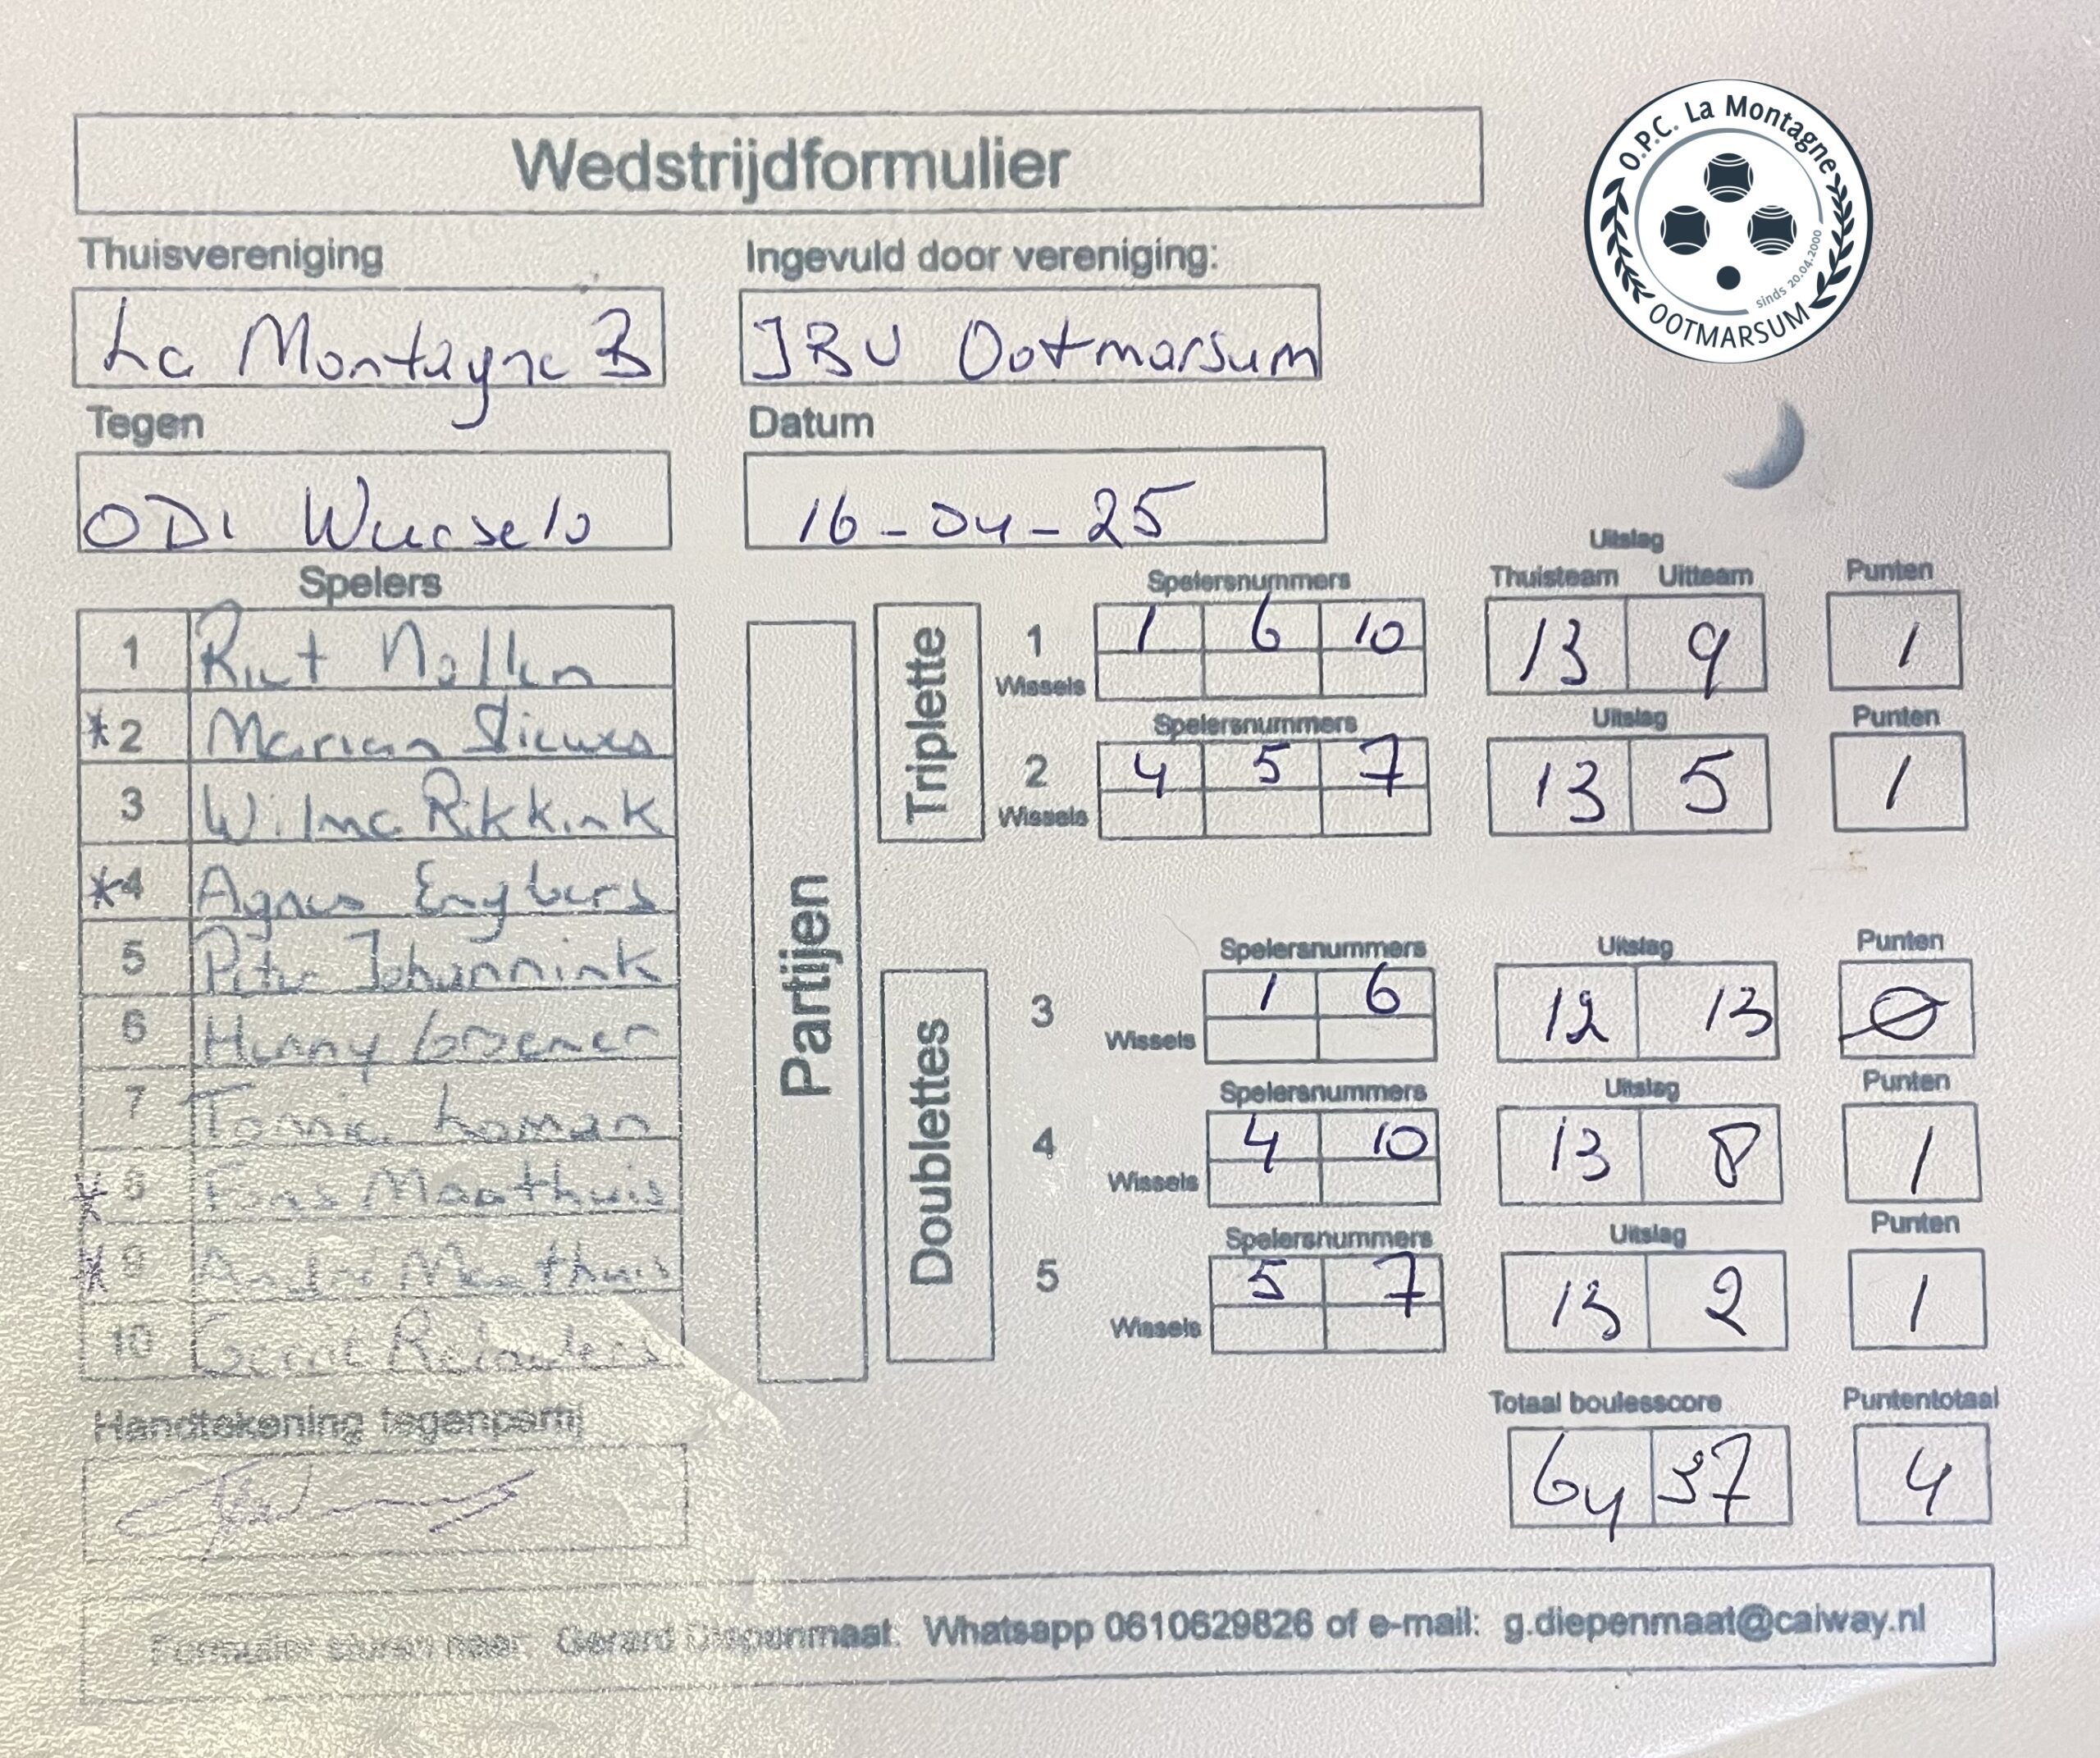 Wedstrijdformulier
O.P.C. La Montagne
sinds 20.04.2000
OOTMARSUM
Thuisvereniging
Ingevuld door vereniging:
La Montagne B
JBV Ootmarsum
Tegen
Datum
ODI
16-04-25
Spelers
Partijen
Triplette
Doublettes
Uitslag
Spelersnummers
Thuisteam Uitteam Punten
1 1 6 10 13 9 1
Wissels
Spelersnummers Uitslag Punten
2 4 5 7 13 5 1
Wissels
Spelersnummers Uitslag Punten
3 1 6 12 13 0
Wissels
Spelersnummers Uitslag Punten
4 4 10 13 8 1
Wissels
Spelersnummers Uitslag Punten
5 5 7 13 2 1
Wissels
1 Riet Nollen
*2 Marian Stieuwes
3 Wilma Rikkink
*4 Agnes Engbers
5 Johannink
6 Henny
7 Tonnie Loman
* 8 Fons Maathuis
* 9 Andre Maathuis
10 Gerrit
Totaal boulesscore Puntentotaal
64 37 4
Handtekening tegenpartij
Formulier sturen naar: Gerard Diepenmaat. Whatsapp 0610629826 of e-mail: g.diepenmaat@caiway.nl